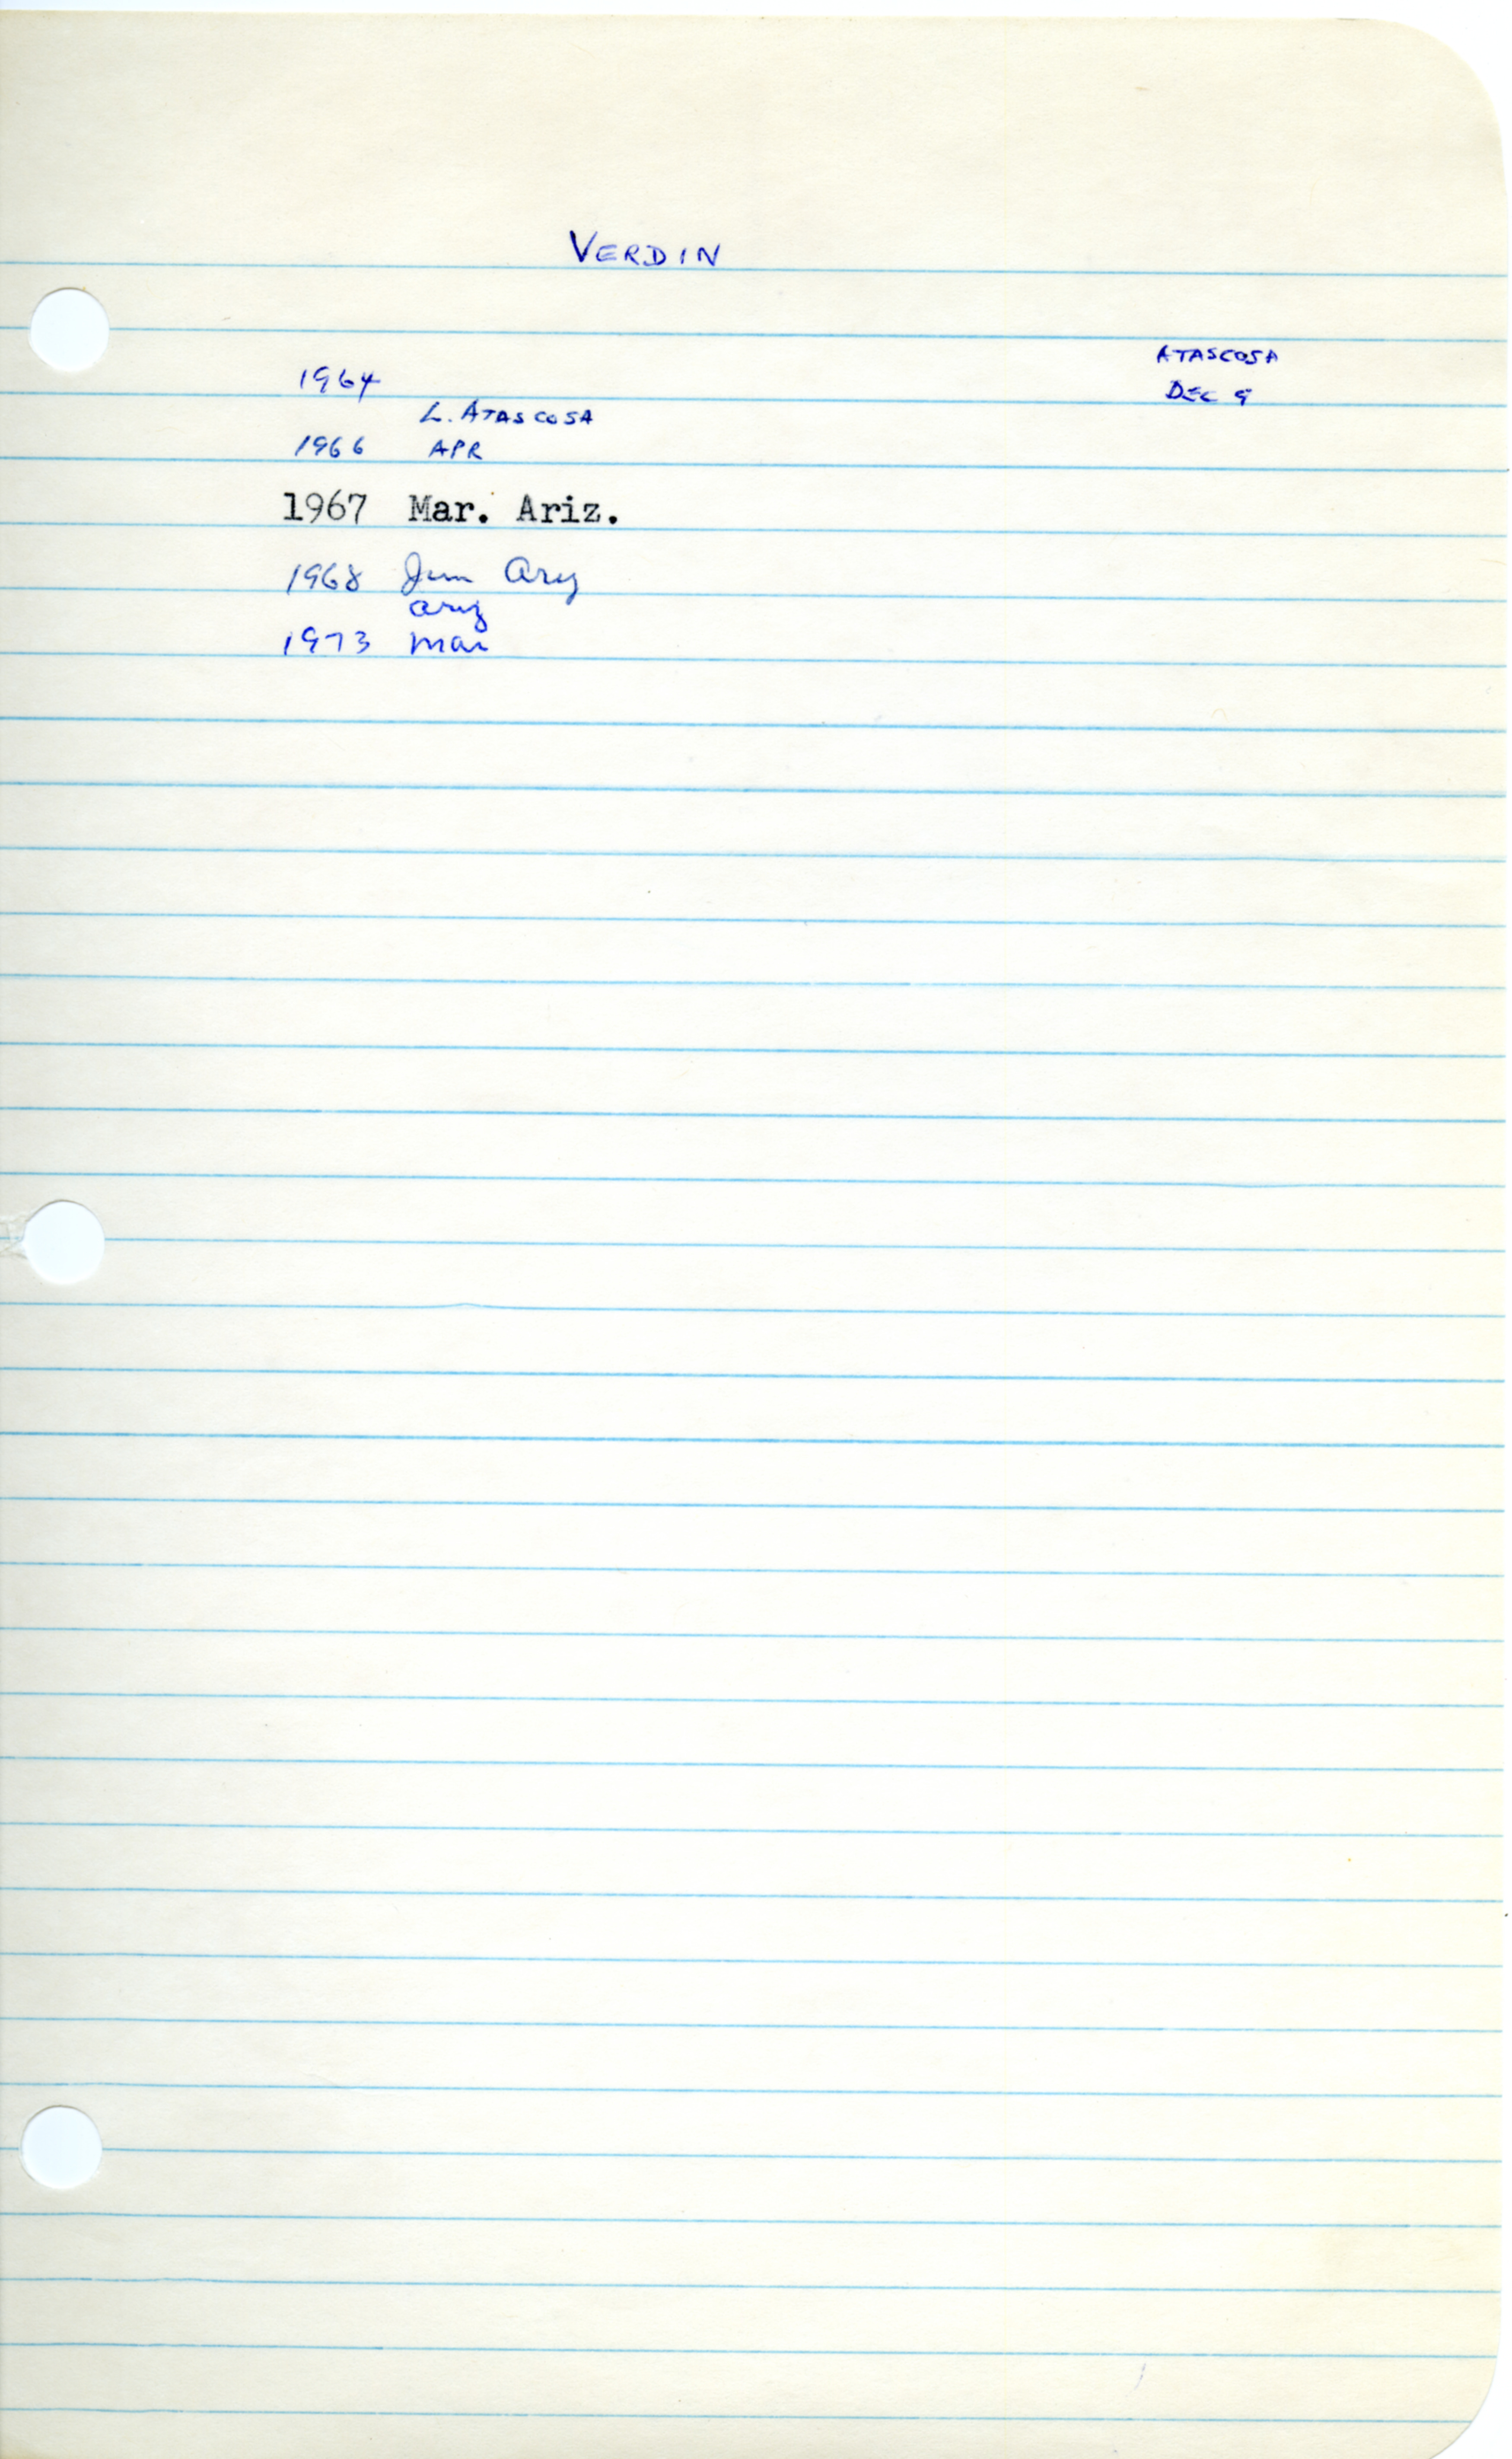 VERDIN
ATASCOSA
1964 DEC 9
L. ATASCOSA
1966 APR
1967 Mar. Ariz.
1968 Jun Ariz
ariz
1973 mar